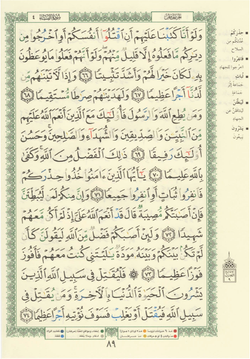 وَلَوْ أَنَّا كَتَبْنَا عَلَيْهِمْ أَنِ ٱقْتُلُوٓا۟ أَنفُسَكُمْ أَوِ ٱخْرُجُوا۟ مِن
دِيَـٰرِكُم مَّا فَعَلُوهُ إِلَّا قَلِيلٌ مِّنْهُمْ وَلَوْ أَنَّهُمْ فَعَلُوا۟ مَا يُوعَظُونَ
بِهِۦ لَكَانَ خَيْرًا لَّهُمْ وَأَشَدَّ تَثْبِيتًا ٦٦ وَإِذًا لَّـَٔاتَيْنَـٰهُم مِّن
لَّدُنَّآ أَجْرًا عَظِيمًا ٦٧ وَلَهَدَيْنَـٰهُمْ صِرَٰطًا مُّسْتَقِيمًا ٦٨
وَمَن يُطِعِ ٱللَّهَ وَٱلرَّسُولَ فَأُو۟لَـٰٓئِكَ مَعَ ٱلَّذِينَ أَنْعَمَ ٱللَّهُ عَلَيْهِم
مِّنَ ٱلنَّبِيِّـۧنَ وَٱلصِّدِّيقِينَ وَٱلشُّهَدَآءِ وَٱلصَّـٰلِحِينَ وَحَسُنَ
أُو۟لَـٰٓئِكَ رَفِيقًا ٦٩ ذَٰلِكَ ٱلْفَضْلُ مِنَ ٱللَّهِ وَكَفَىٰ
بِٱللَّهِ عَلِيمًا ٧٠ يَـٰٓأَيُّهَا ٱلَّذِينَ ءَامَنُوا۟ خُذُوا۟ حِذْرَكُمْ
فَٱنفِرُوا۟ ثُبَاتٍ أَوِ ٱنفِرُوا۟ جَمِيعًا ٧١ وَإِنَّ مِنكُمْ لَمَن لَّيُبَطِّئَنَّ
فَإِنْ أَصَـٰبَتْكُم مُّصِيبَةٌ قَالَ قَدْ أَنْعَمَ ٱللَّهُ عَلَىَّ إِذْ لَمْ أَكُن مَّعَهُمْ
شَهِيدًا ٧٢ وَلَئِنْ أَصَـٰبَكُمْ فَضْلٌ مِّنَ ٱللَّهِ لَيَقُولَنَّ كَأَن
لَّمْ تَكُنۢ بَيْنَكُمْ وَبَيْنَهُۥ مَوَدَّةٌ يَـٰلَيْتَنِى كُنتُ مَعَهُمْ فَأَفُوزَ
فَوْزًا عَظِيمًا ٧٣ فَلْيُقَـٰتِلْ فِى سَبِيلِ ٱللَّهِ ٱلَّذِينَ
يَشْرُونَ ٱلْحَيَوٰةَ ٱلدُّنْيَا بِٱلْـَٔاخِرَةِ وَمَن يُقَـٰتِلْ فِى
سَبِيلِ ٱللَّهِ فَيُقْتَلْ أَوْ يَغْلِبْ فَسَوْفَ نُؤْتِيهِ أَجْرًا عَظِيمًا ٧٤
٨٩